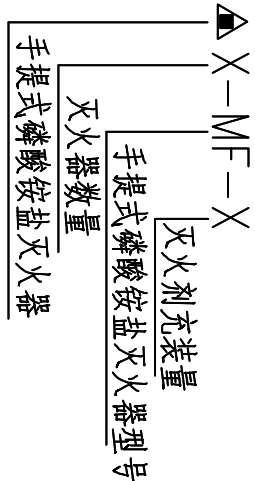 X-MF-X
灭火剂充装量
手提式磷酸铵盐灭火器型号
灭火器数量
手提式磷酸铵盐灭火器